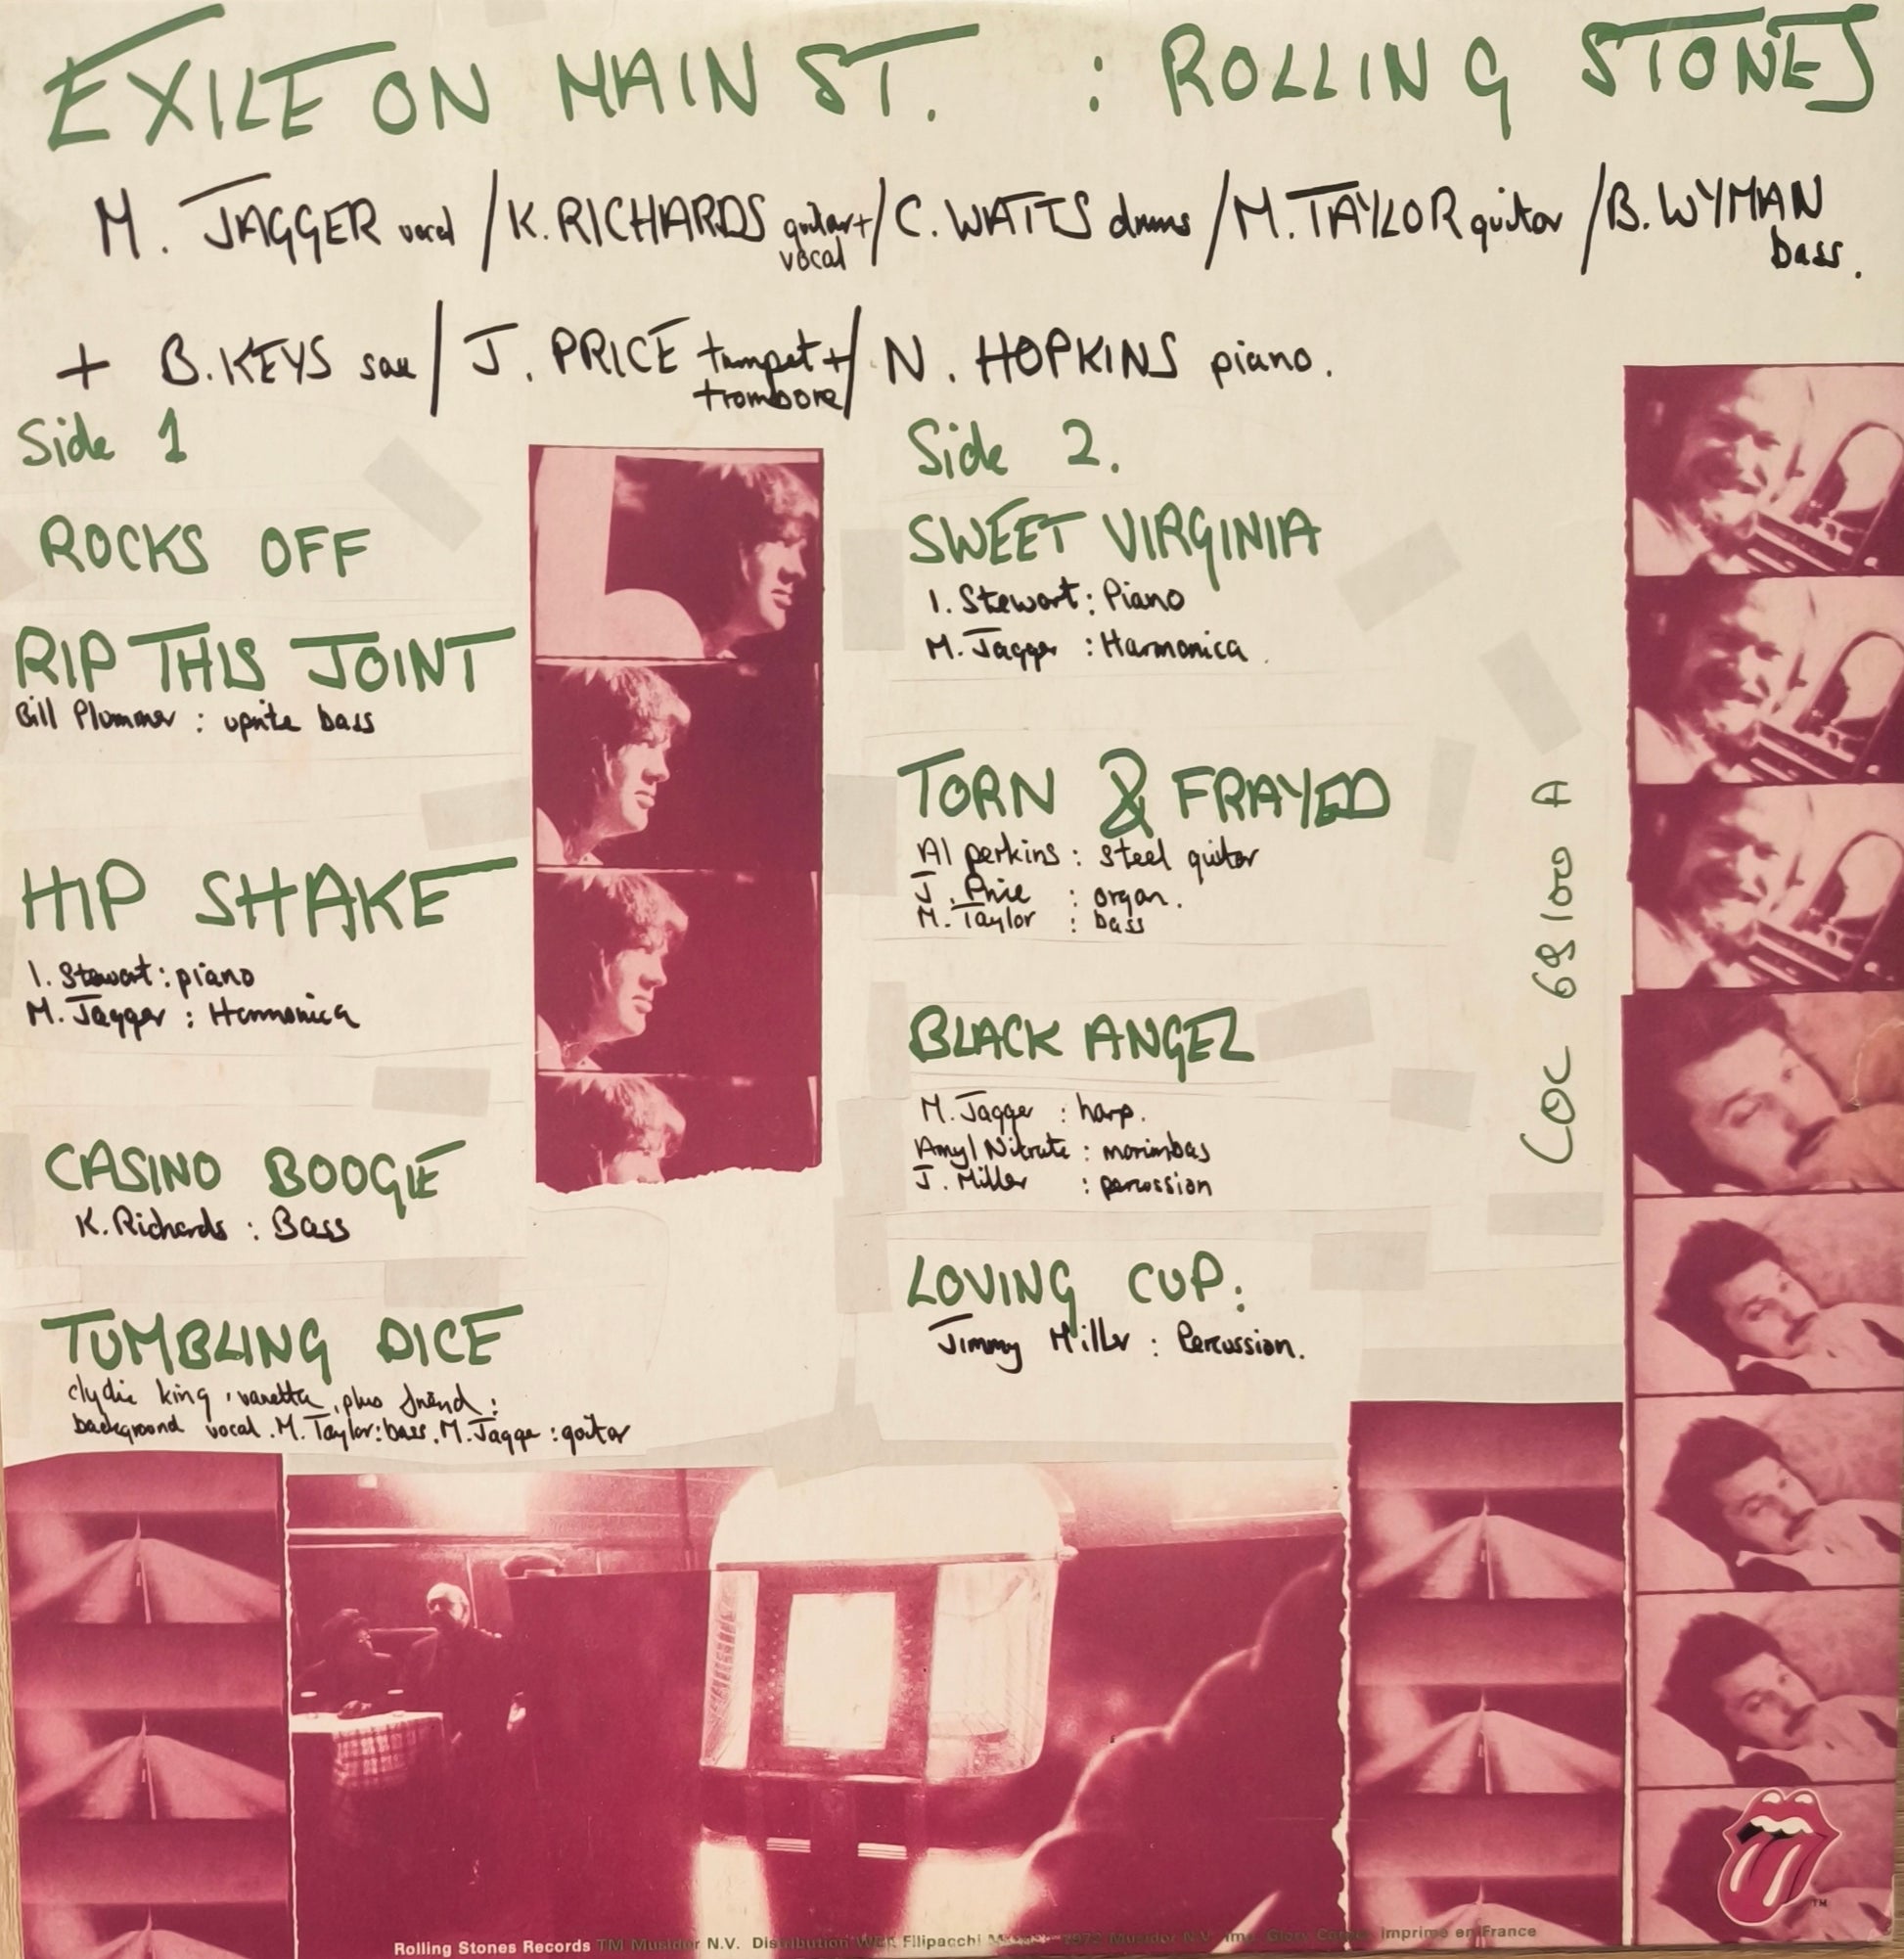 EXILE ON MAIN ST. : ROLLING STONES
M. JAGGER vocal / K. RICHARDS guitar + vocal / C. WATTS drums / M. TAYLOR guitar / B. WYMAN bass.
+ B. KEYS sax / J. PRICE trumpet + trombone / N. HOPKINS piano.
Side 1
ROCKS OFF
RIP THIS JOINT
Bill Plummer : uprite bass
HIP SHAKE
I. Stewart : piano
M. Jagger : Harmonica
CASINO BOOGIE
K. Richards : Bass
TUMBLING DICE
clydie king, vanetta, plus friend :
background vocal. M. Taylor : bass. M. Jagger : guitar
Side 2.
SWEET VIRGINIA
I. Stewart : Piano
M. Jagger : Harmonica.
TORN & FRAYED
Al perkins : steel guitar
J. Price : organ.
M. Taylor : bass
BLACK ANGEL
M. Jagger : harp.
Amyl Nitrate : marimbas
J. Miller : percussion
LOVING CUP :
Jimmy Miller : Percussion.
COC 69100 A
Rolling Stones Records TM Musidor N.V. Distribution WEA Filipacchi 1972 Musidor N.V. Imp. Imprimé en France
TM